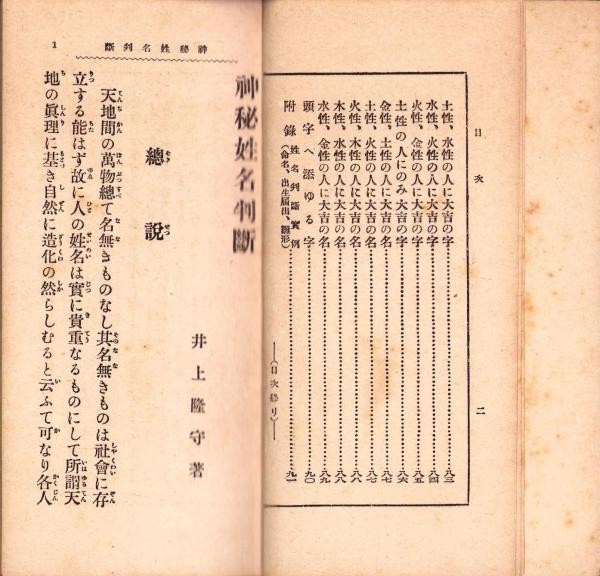 目次
二
土性、水性の人に大吉の字……八三
水性、火性の人に大吉の字……八四
火性、金性の人に大吉の字……八五
土性の人にのみ大吉の字……八六
金性、土性の人に大吉の名……八七
土性、火性の人に大吉の名……八七
火性、木性の人に大吉の名……八八
木性、水性の人に大吉の名……八八
水性、金性の人に大吉の名……八九
頭字へ添ゆる字……九〇
附錄 姓名判斷實例(命名、出生屆出、雛形)……九一
――(目次終り)――
神秘姓名判斷
1
神秘姓名判斷
井上隆守著
總說
天地間の萬物總て名無きものなし其名無きものは社會に存
立する能はず故に人の姓名は實に貴重なるものにして所謂天
地の眞理に基き自然に造化の然らしむると云ふて可なり各人